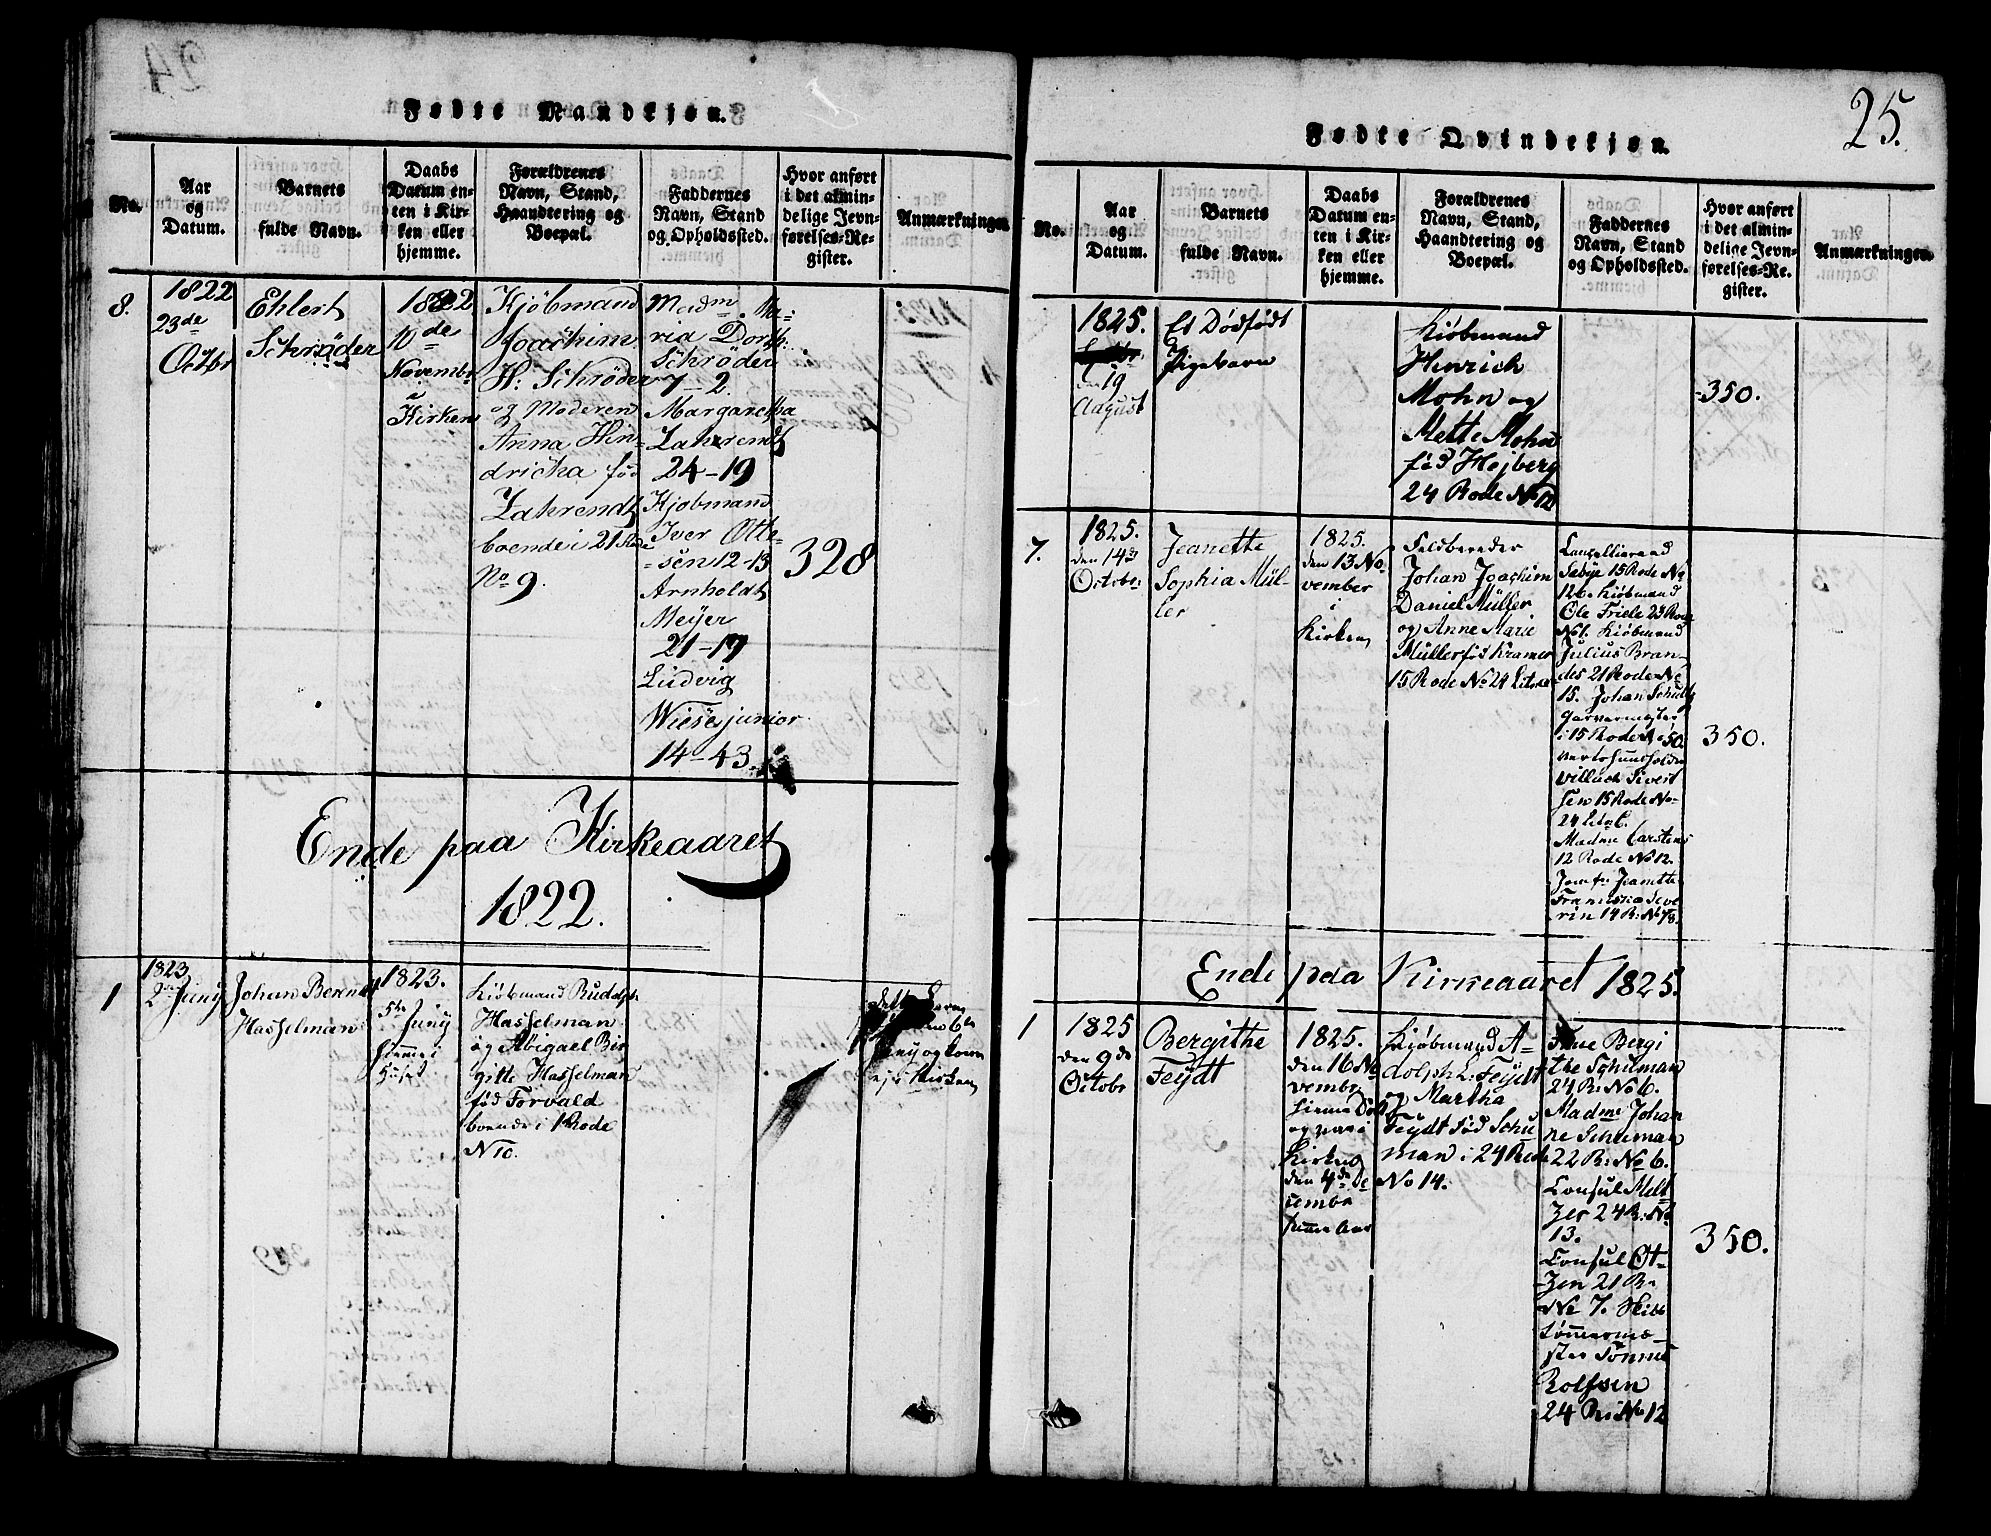 Fødte Mandkjøn.
No.
Aar
og
Datum.
Barnets
fulde Navn.
Daabs
Datum en-
ten i Kir-
ken eller
hjemme.
Forældrenes
Navn, Stand,
Haandtering og
Boepæl.
Faddernes
Navn, Stand
og Opholdssted.
Hvor anført
i det almin-
delige Jevn-
førelses-Re-
gister.
Anmærkninger.
8.
1822
23de
Octbr
Ehlert
Schröder
1822
10de
Novembr
i
Kirken
Kjöbmand
Joachim
H. Schröder
og Moderen
Anna Hin-
dricha fød
Zahrendt
boende i 21 Rode
No 9.
Madm Ma-
ria Dorth.
Schröder
7-2.
Margaretha
Zahrendt
24-19
Kjöbmand
Iver Otte-
sen 12-13
Arnholdt
Meyer
21-19
Ludvig
Wiese junior
14-43.
328
Ende paa Kirkeaaret
1822.
1
1823
2den Juny
Johan Berendt
Hasselman
1823.
5te Juny
hjemme i
Huset
Kiöbmand Rudolph
Hasselman
og Abigael Bir
gitte Hasselman
fød Forvald
boende i 1 Rode
N 10.
dette Barn
6te
Juny og kom
ej i Kirken
25.
Fødte Qvindekjøn.
No.
Aar
og
Datum.
Barnets
fulde Navn.
Daabs
Datum en-
ten i Kir-
ken eller
hjemme.
Forældrenes
Navn, Stand,
Haandtering og
Boepæl.
Faddernes
Navn, Stand
og Opholdssted.
Hvor anført
i det almin-
delige Jevn-
førelses-Re-
gister.
Anmærkninger.
1825.
den 19
August
Et Dödfödt
Pigebarn
Kiöbmand
Henrich
Mohn og
Mette Mohn
fød Hojberg
24 Rode No 12
350.
7.
1825.
den 14de
October
Jeanette
Sophia Mül-
ler
1825.
den 13 No
vember
i
Kirken
Feldbereder
Johan Joachim
Daniel Müller
og Anne Marie
Müller fød Kramer
15 Rode No 24 Litr
Cancellieraad
Sabye 15 Rode No
126. Kiöbmand
Ole Friele 23 Rode
No 1. Kiöbmand
Julius Bran-
des 21 Rode No
15. Johan Schultz
Garvermester
i 15 Rode No 50.
Villach Sivert
sen 15 Rode No
24 Litr
Madme Carstens
12 Rode No 12.
Jomfr Jeanette
Franciska Seve
rin 14 R: No 78.
350.
Ende paa Kirkeaaret 1825.
1
1825
den 9de
Octobr
Bergithe
Feydt
1825.
den 16 No
vembr
hieme Döbt
og var i
Kirken
den 4de De
cembr
samme Aar
Kjöbmand A-
dolph L. Feydt
og Martha
Feydt fød Schu-
man i 24 Rode
No 14.
Frue Bergi
the Schuman
24 R: No 6.
Madme Johan
ne Schuman
22 R: No 6.
Consul Melt
zer 24 R: No
13.
Consul Ot-
zen 21 R:
No 7. Skibs
tömmerme-
ster Tönnes
Rolfsen
24 R: No 12
350.